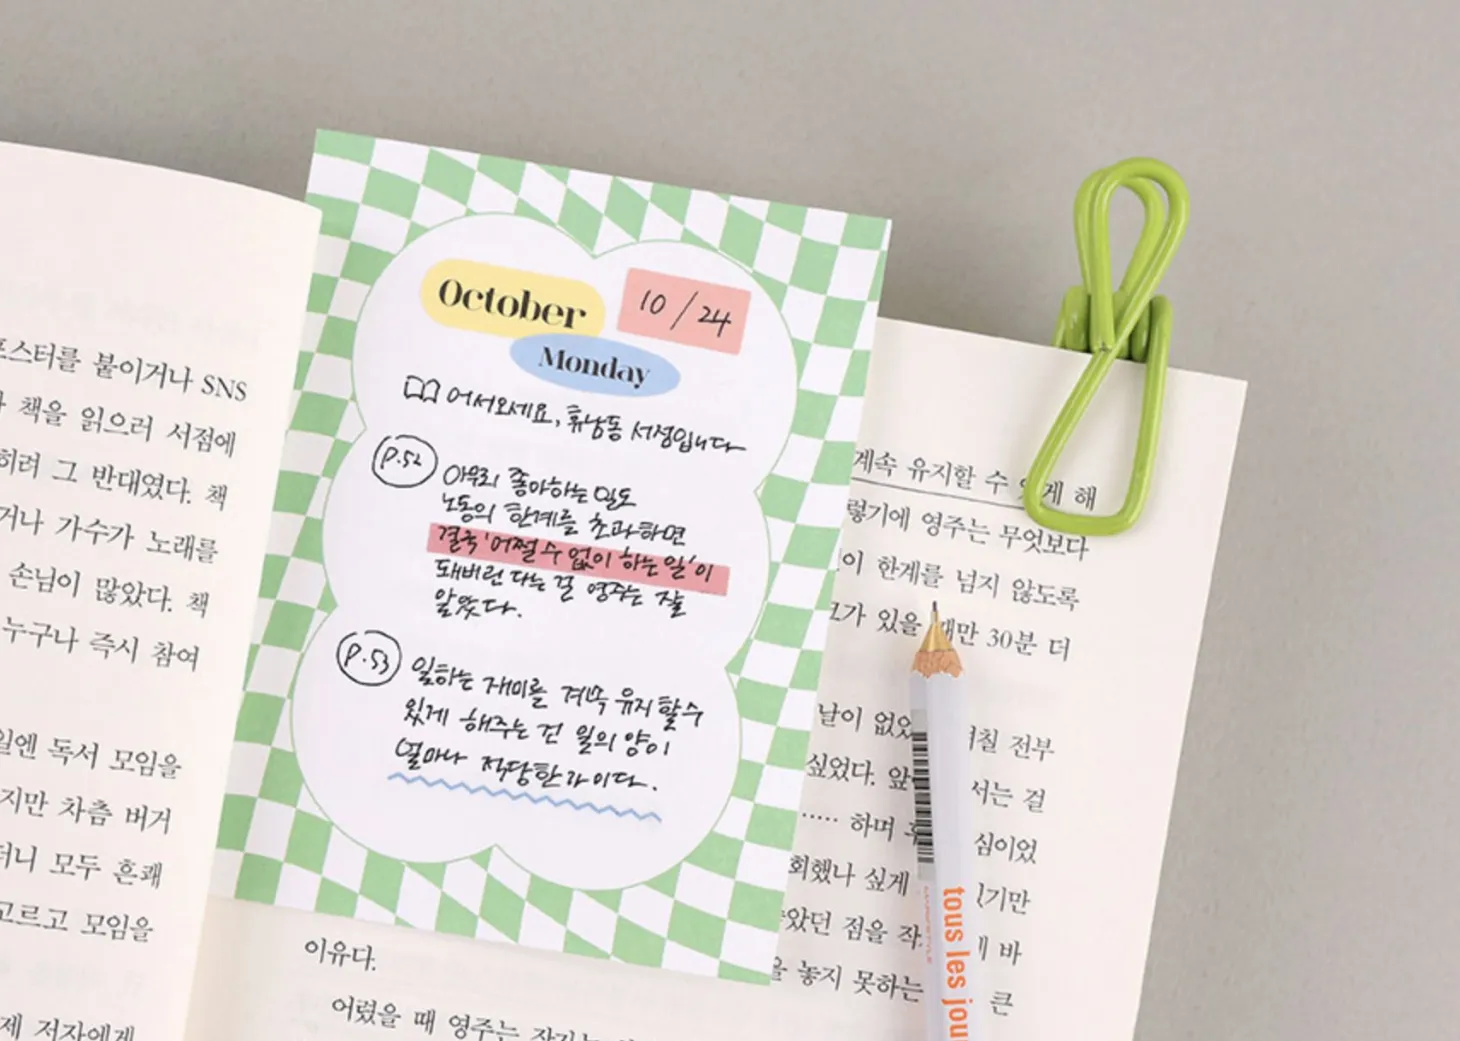 포스터를 붙이거나 SNS
책을 읽으러 서점에
그 반대였다. 책
가수가 노래를
손님이 많았다. 책
누구나 즉시 참여
독서 모임을
차츰 버거
모두 흔쾌
고르고 모임을
저자에게
October
10/24
Monday
어서오세요, 휴남동 서점입니다
p.52
아무리 좋아하는 일도
노동의 한계를 초과하면
결국 '어쩔 수 없이 하는 일'이
돼버린다는 걸 영주는 잘
알았다.
p.53
일하는 재미를 계속 유지할 수
있게 해주는 건 일의 양이
얼마나 적당한가이다.
계속 유지할 수 있게 해
영주는 무엇보다
한계를 넘지 않도록
있을 때만 30분 더
날이 없었 며칠 전부
싶었다. 걸
…… 하며
싶게
점을 바
놓지 못하는 큰
이유다.
어렸을 때 영주는
tous les jou